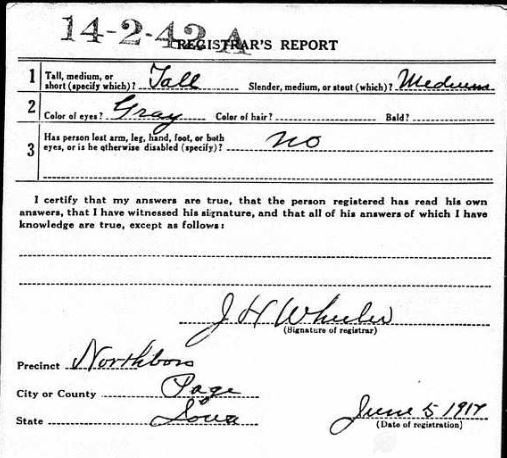 14-2-42 A
REGISTRAR'S REPORT
1 Tall, medium, or short (specify which)? Tall Slender, medium, or stout (which)? Medium
2 Color of eyes? Gray Color of hair? Bald?
3 Has person lost arm, leg, hand, foot, or both
eyes, or is he otherwise disabled (specify)? no
I certify that my answers are true, that the person registered has read his own
answers, that I have witnessed his signature, and that all of his answers of which I have
knowledge are true, except as follows:
J H Wheeler
(Signature of registrar)
Precinct Northboro
City or County Page
State Iowa June 5 1917
(Date of registration)